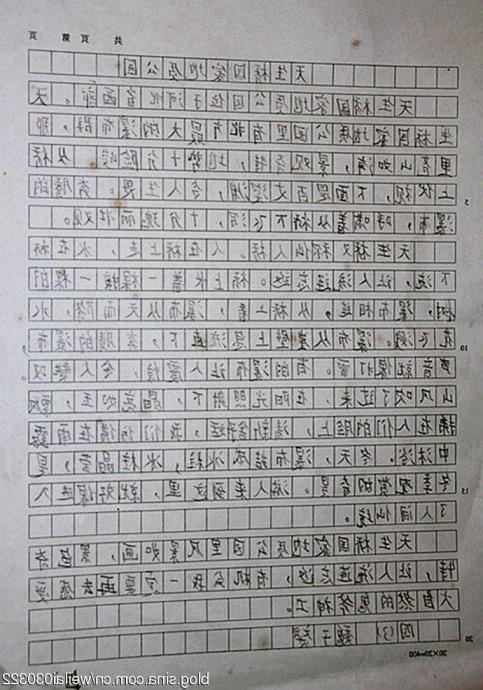 共 页 第 页
天生桥国家地质公园
天生桥国家地质公园位于河北省西部。天
生桥国家地质公园里有北方最大的瀑布群，那
里高山如海，景观奇特，地势十分险峻。从桥
上俯视，下面是百丈深渊，令人生畏。奔腾的
瀑布，呼啸着从桥下飞泻，十分壮观。
天生桥又称仙人桥。人在桥上走，水在桥
下流，让人流连忘返。桥上长着一棵一棵的
树，瀑布相连，从桥上看，瀑布从天而降，水
花飞溅。瀑布从崖壁上急流直下，奔腾的瀑布
声音就像打雷。有的瀑布让人震惊，令人赞叹。
山风吹了过来，在阳光照射下，晶莹如玉，飘
拂在人们的脸上，清新舒适，我们仿佛在雨露
中沐浴。冬天，瀑布结成冰柱，冰柱晶莹，是
冬季观赏的奇景。游人来到这里，就好像进入
了人间仙境。
天生桥国家地质公园里风景如画，景色奇
特，让人流连忘返，有机会我一定要再去感受
大自然的鬼斧神工。
四(3) 魏子
20×20=400
blog.sina.com.cn/weilai080822